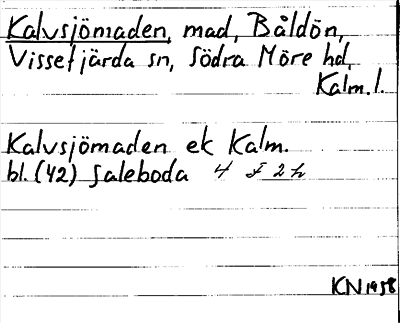 Kalvsjömaden, mad, Båldön,
Vissefjärda sn, Södra Möre hd,
Kalm.l.
Kalvsjömaden ek Kalm.
bl.(42) Saleboda 4 f 2 h
KN 1958